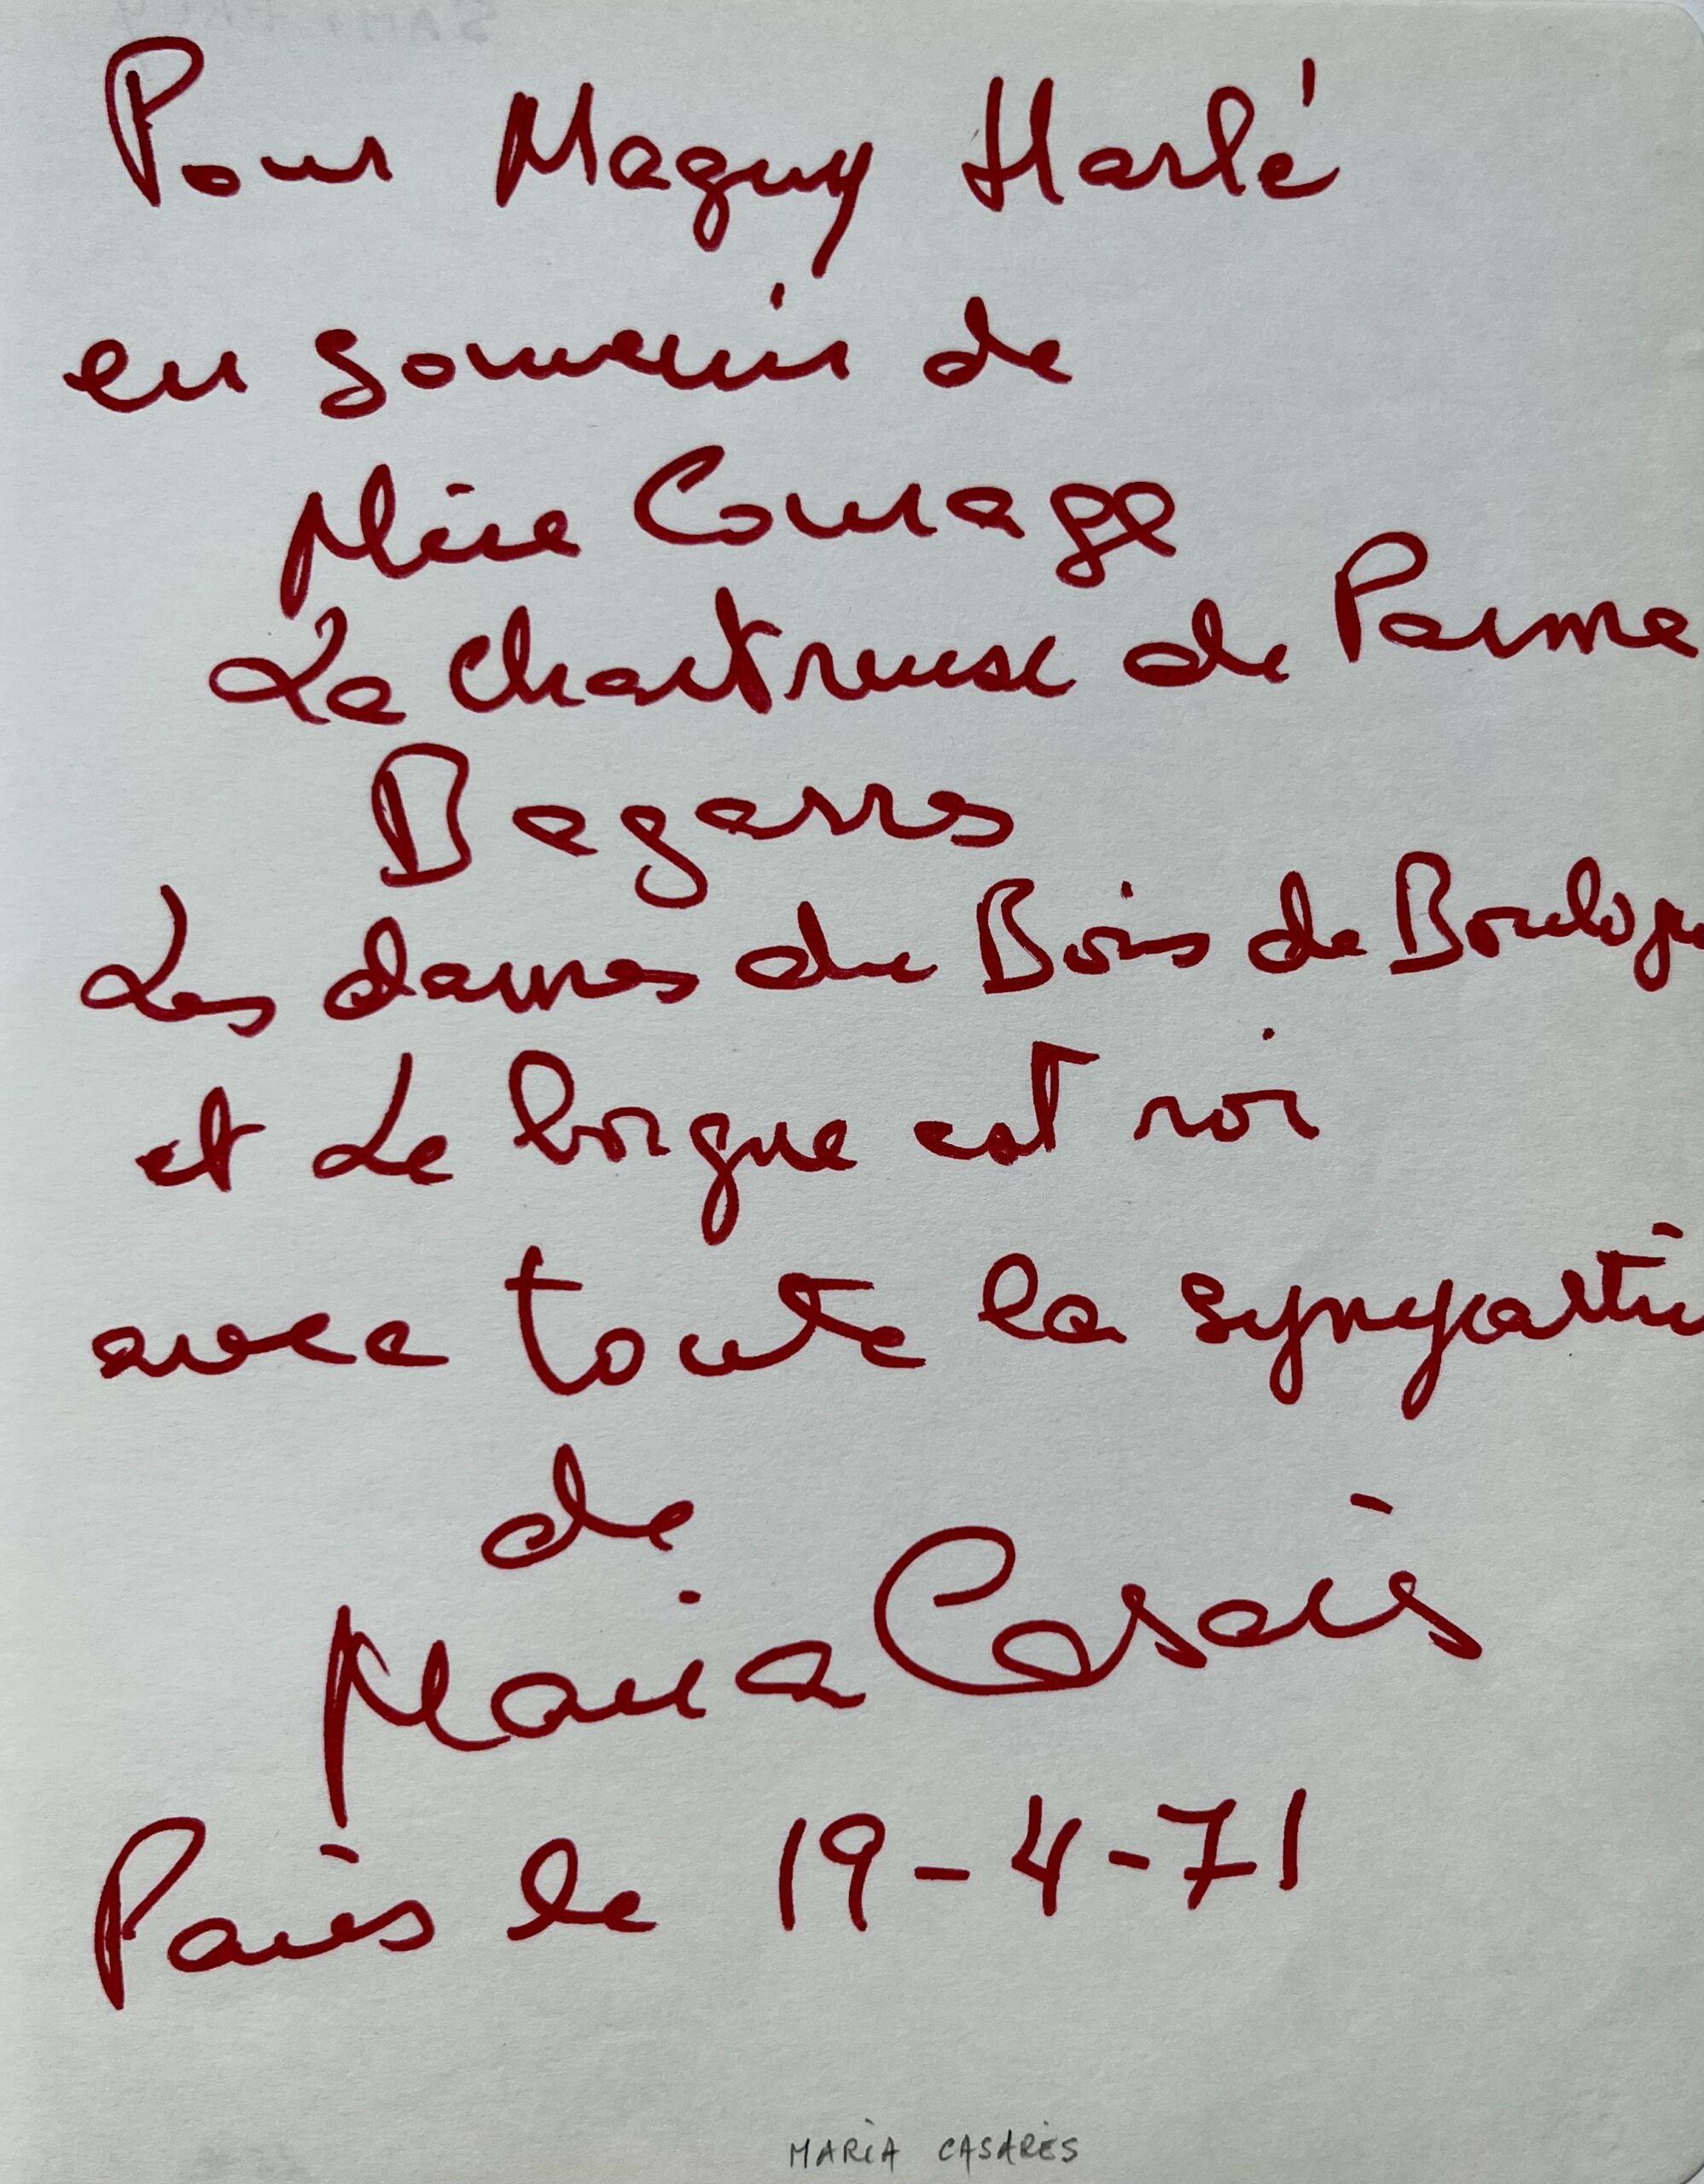 Pour Maguy Harlé
en souvenir de
Mère Courage
La chartreuse de Parme
Bagarres
Les dames du Bois de Boulogne
et Le borgne est roi
avec toute la sympathie
de
Maria Casarès
Paris le 19-4-71
MARIA CASARÈS